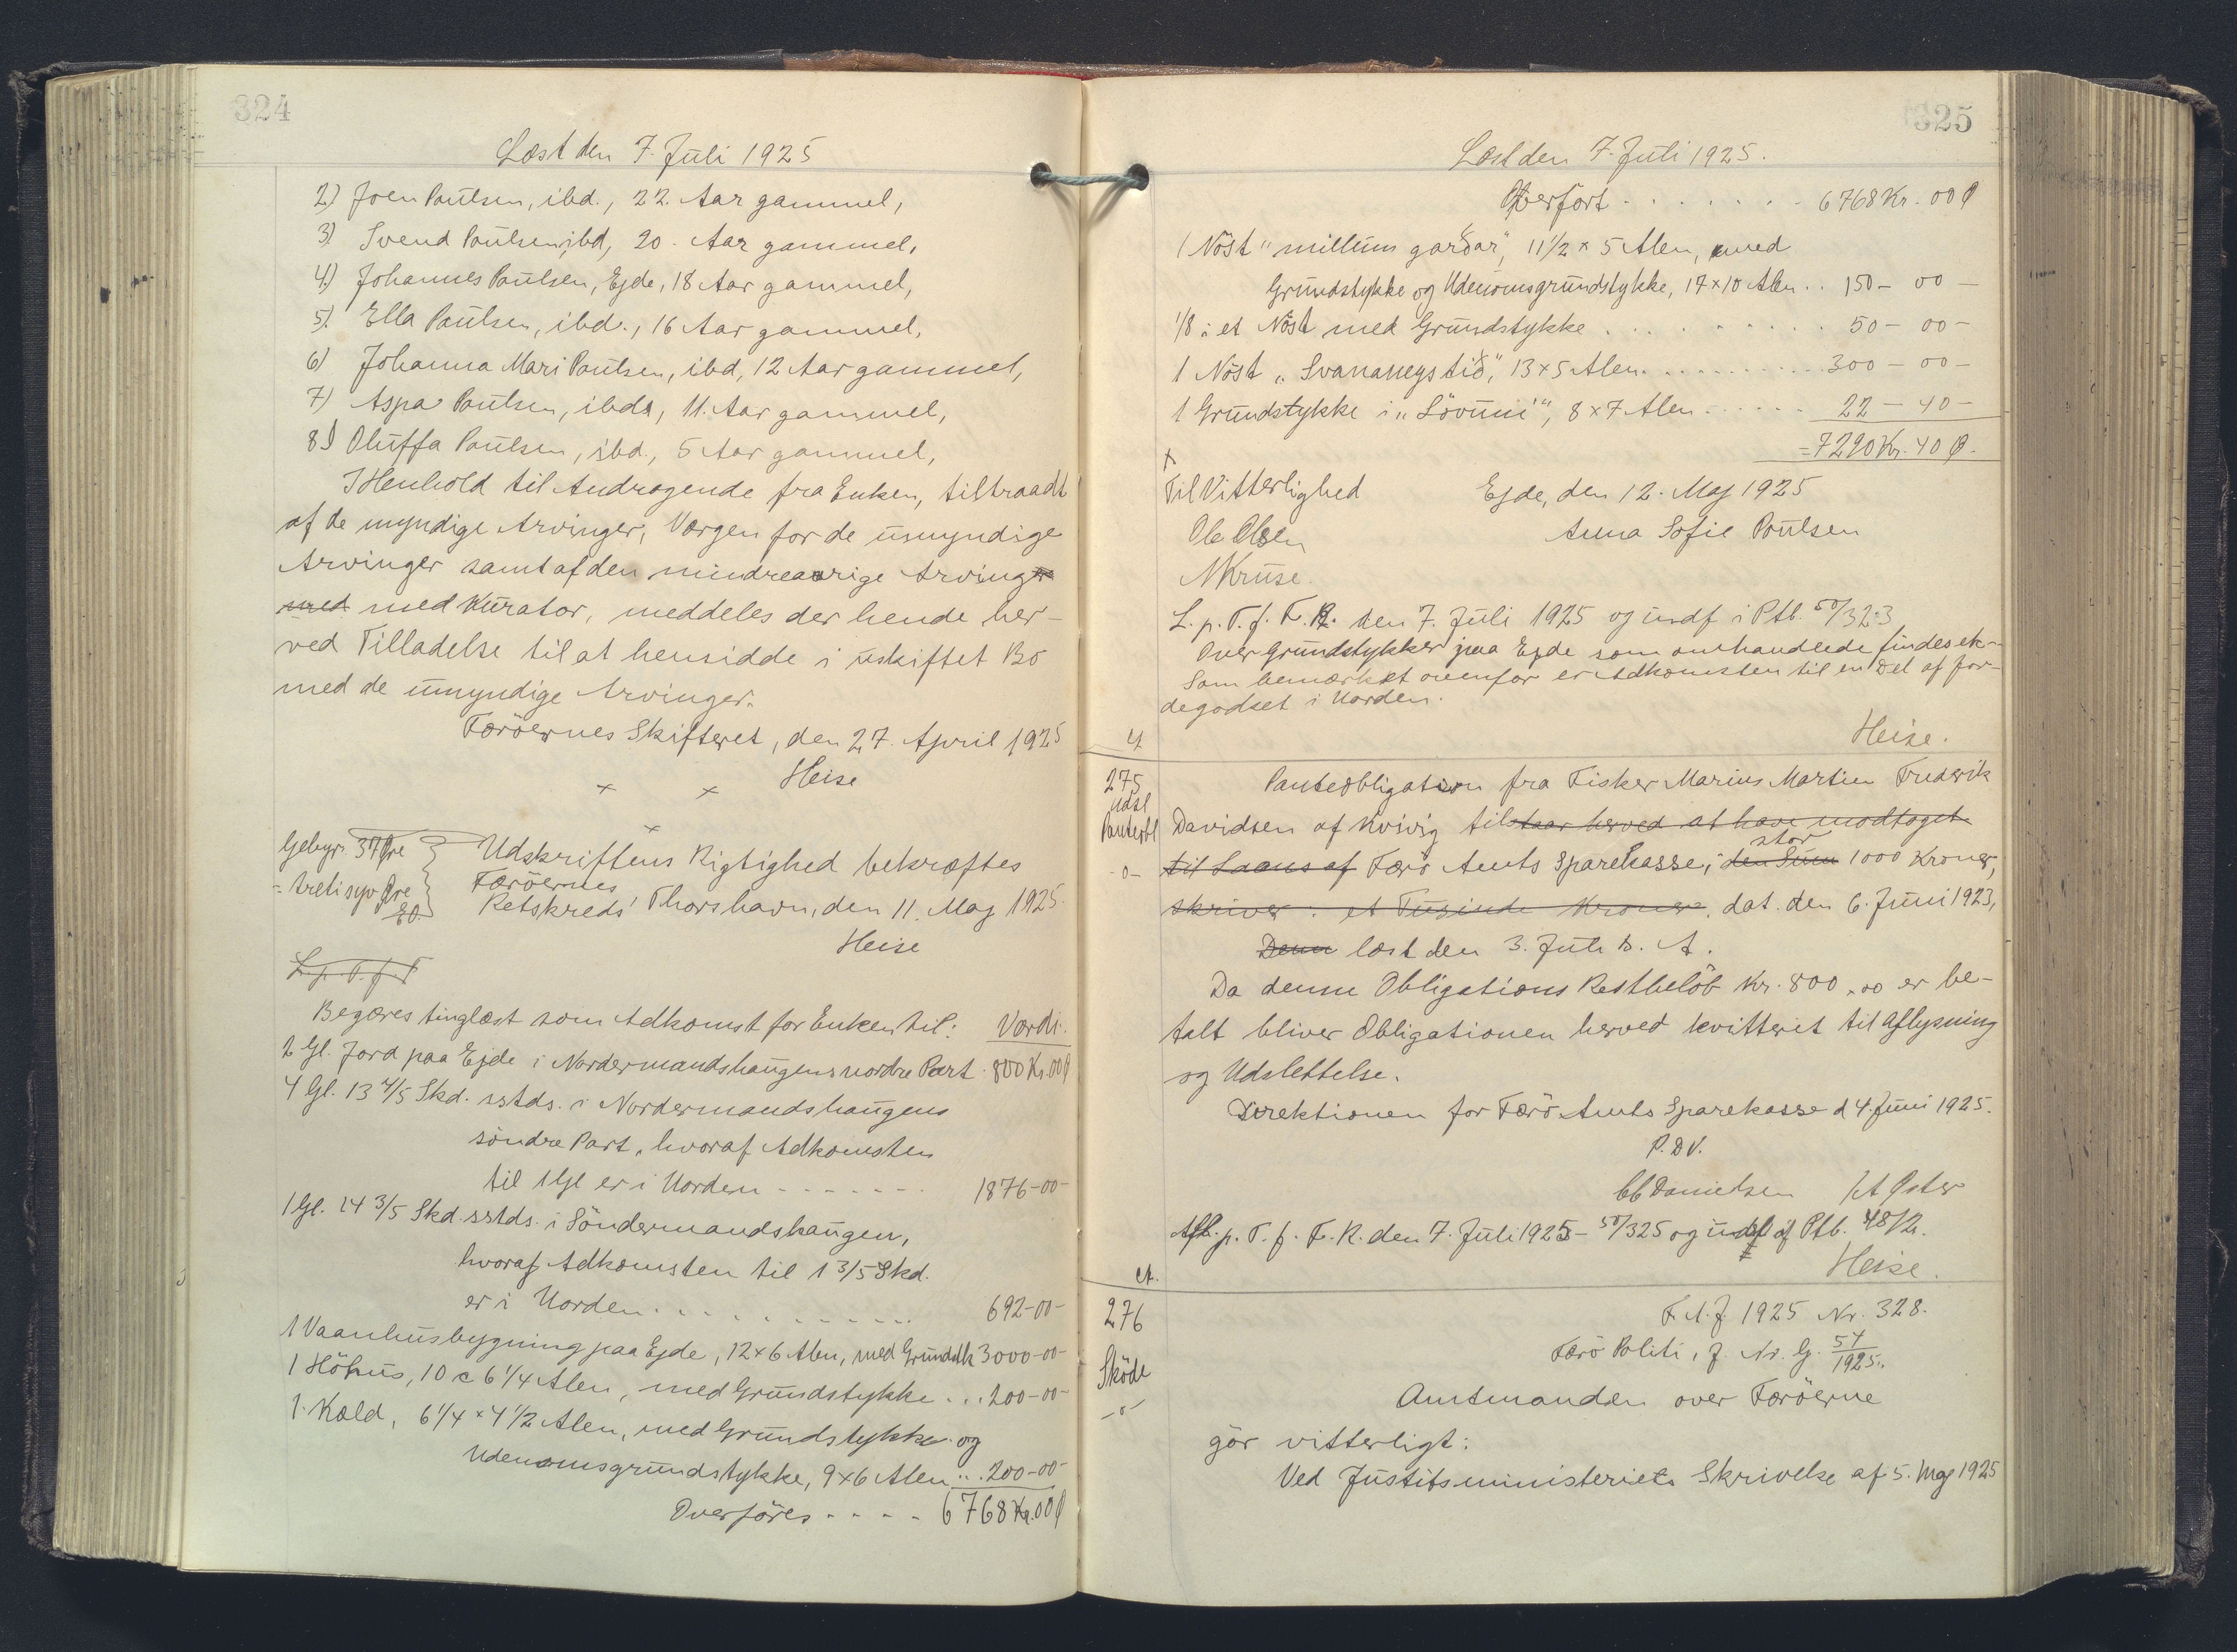 324
Læst den 7. Juli 1925
2) Joen Poulsen, ibd., 22. Aar gammel,
3) Svend Poulsen, ibd, 20. Aar gammel,
4) Johannes Poulsen, Ejde, 18 Aar gammel,
5) Ella Poulsen, ibd., 16 Aar gammel,
6) Johanna Mari Poulsen, ibd, 12 Aar gammel,
7) Aspa Poulsen, ibd, 11. Aar gammel,
8) Oluffa Poulsen, ibd., 5 Aar gammel,
I Henhold til Andragende fra Enken, tiltraadt
af de myndige Arvinger, Værgen for de umyndige
Arvinger samt af den mindreaarige Arving
med med Kurator, meddeles der hende her-
ved Tilladelse til at hensidde i uskiftet Bo
med de umyndige Arvinger.
Færöernes Skifteret, den 27. April 1925
Heise
Gebyr. 37 Øre
= treti syv Øre
Udskriftens Rigtighed bekræftes
Færöernes
Retskreds' Thorshavn, den 11. Maj 1925.
Heise
L. p. T. f. F
Begæres tinglæst som Adkomst for Enken til: Værdi.
2 Gl. Jord paa Ejde i Nordermandshaugens nordre Part. 800 Kr. 00 Ø
4 Gl. 13 4/5 Skd. sstds. i Nordermandshaugens
söndre Part, hvoraf Adkomsten
til 1 Gl er i Uorden - - - - - - - 1876-00-
1 Gl. 14 3/5 Skd. sstds. i Söndermandshaugen,
hvoraf Adkomsten til 1 3/5 Skd.
er i Uorden . . . . . . . . . . . 692-00-
1 Vaanhusbygning paa Ejde, 12 x 6 Alen, med Grundstk 3000-00-
1 Höhus, 10 x 6 1/4 Alen, med Grundstykke . . . 200-00-
1. Kald, 6 1/4 x 4 1/2 Alen, med Grundstykke og
Udenomsgrundstykke, 9x6 Alen .. 200-00-
Overföres - - - - 6768 Kr. 00 Ø
325
Læst den 7. Juli 1925.
Overfört . . . . . . . 6768 Kr. 00 Ø
1 Nöst "millum garðar", 11 1/2 x 5 Alen, med
Grundstykke og Udenomsgrundstykke, 17 x 10 Alen . . 150 - 00 -
1/8 i et Nöst med Grundstykke . . . . . . . . . . 50 - 00 -
1 Nöst "Svananeystið", 13 x 5 Alen . . . . . . . . . . 300 - 00 -
1 Grundstykke i "Lövuni", 8 x 7 Alen - - - - - - 22 - 40 -
= 7290 Kr. 40 Ø.
Til Vitterlighed
Ejde, den 12. Maj 1925
Ole Olsen
Anna Sofie Poulsen
N Kruse.
L. p. T. f. F. R. den 7. Juli 1925 og indf i Ptb. 50/323
Over Grundstykker paa Ejde som omhandlede findes ek-
Som bemærket ovenfor er Adkomsten til en Del af for-
degodset i Uorden.
Heise.
275
Udsl
Panteobl
-o-
Panteobligation fra Fisker Marius Martin Frederik
Davidsen af Kvivig tilstaar herved at have modtaget
stor
til Laans af Færö Amts Sparekasse, den Sum 1000 Kroner,
skriver: et Tusinde Kroner, dat. den 6. Juni 1923,
Denn læst den 3. Juli s. A.
Da denne Obligations Restbelöb Kr. 800,00 er be-
talt bliver Obligationen herved kvitteret til Aflysning
og Udslettelse.
Direktionen for Færö Amts Sparekasse d 4. Juni 1925.
P. D V.
CC Danielsen
Afl. p. T. f. F. R. den 7. Juli 1925 - 50/325 og udsl af Ptb. 48/2.
Heise.
276
Sköde
-o-
F. A. J 1925 Nr. 328.
Færö Politi, J. Nr. G. 54/1925.
Amtmanden over Færöerne
gör vitterligt:
Ved Justitsministeriets Skrivelse af 5. Maj 1925